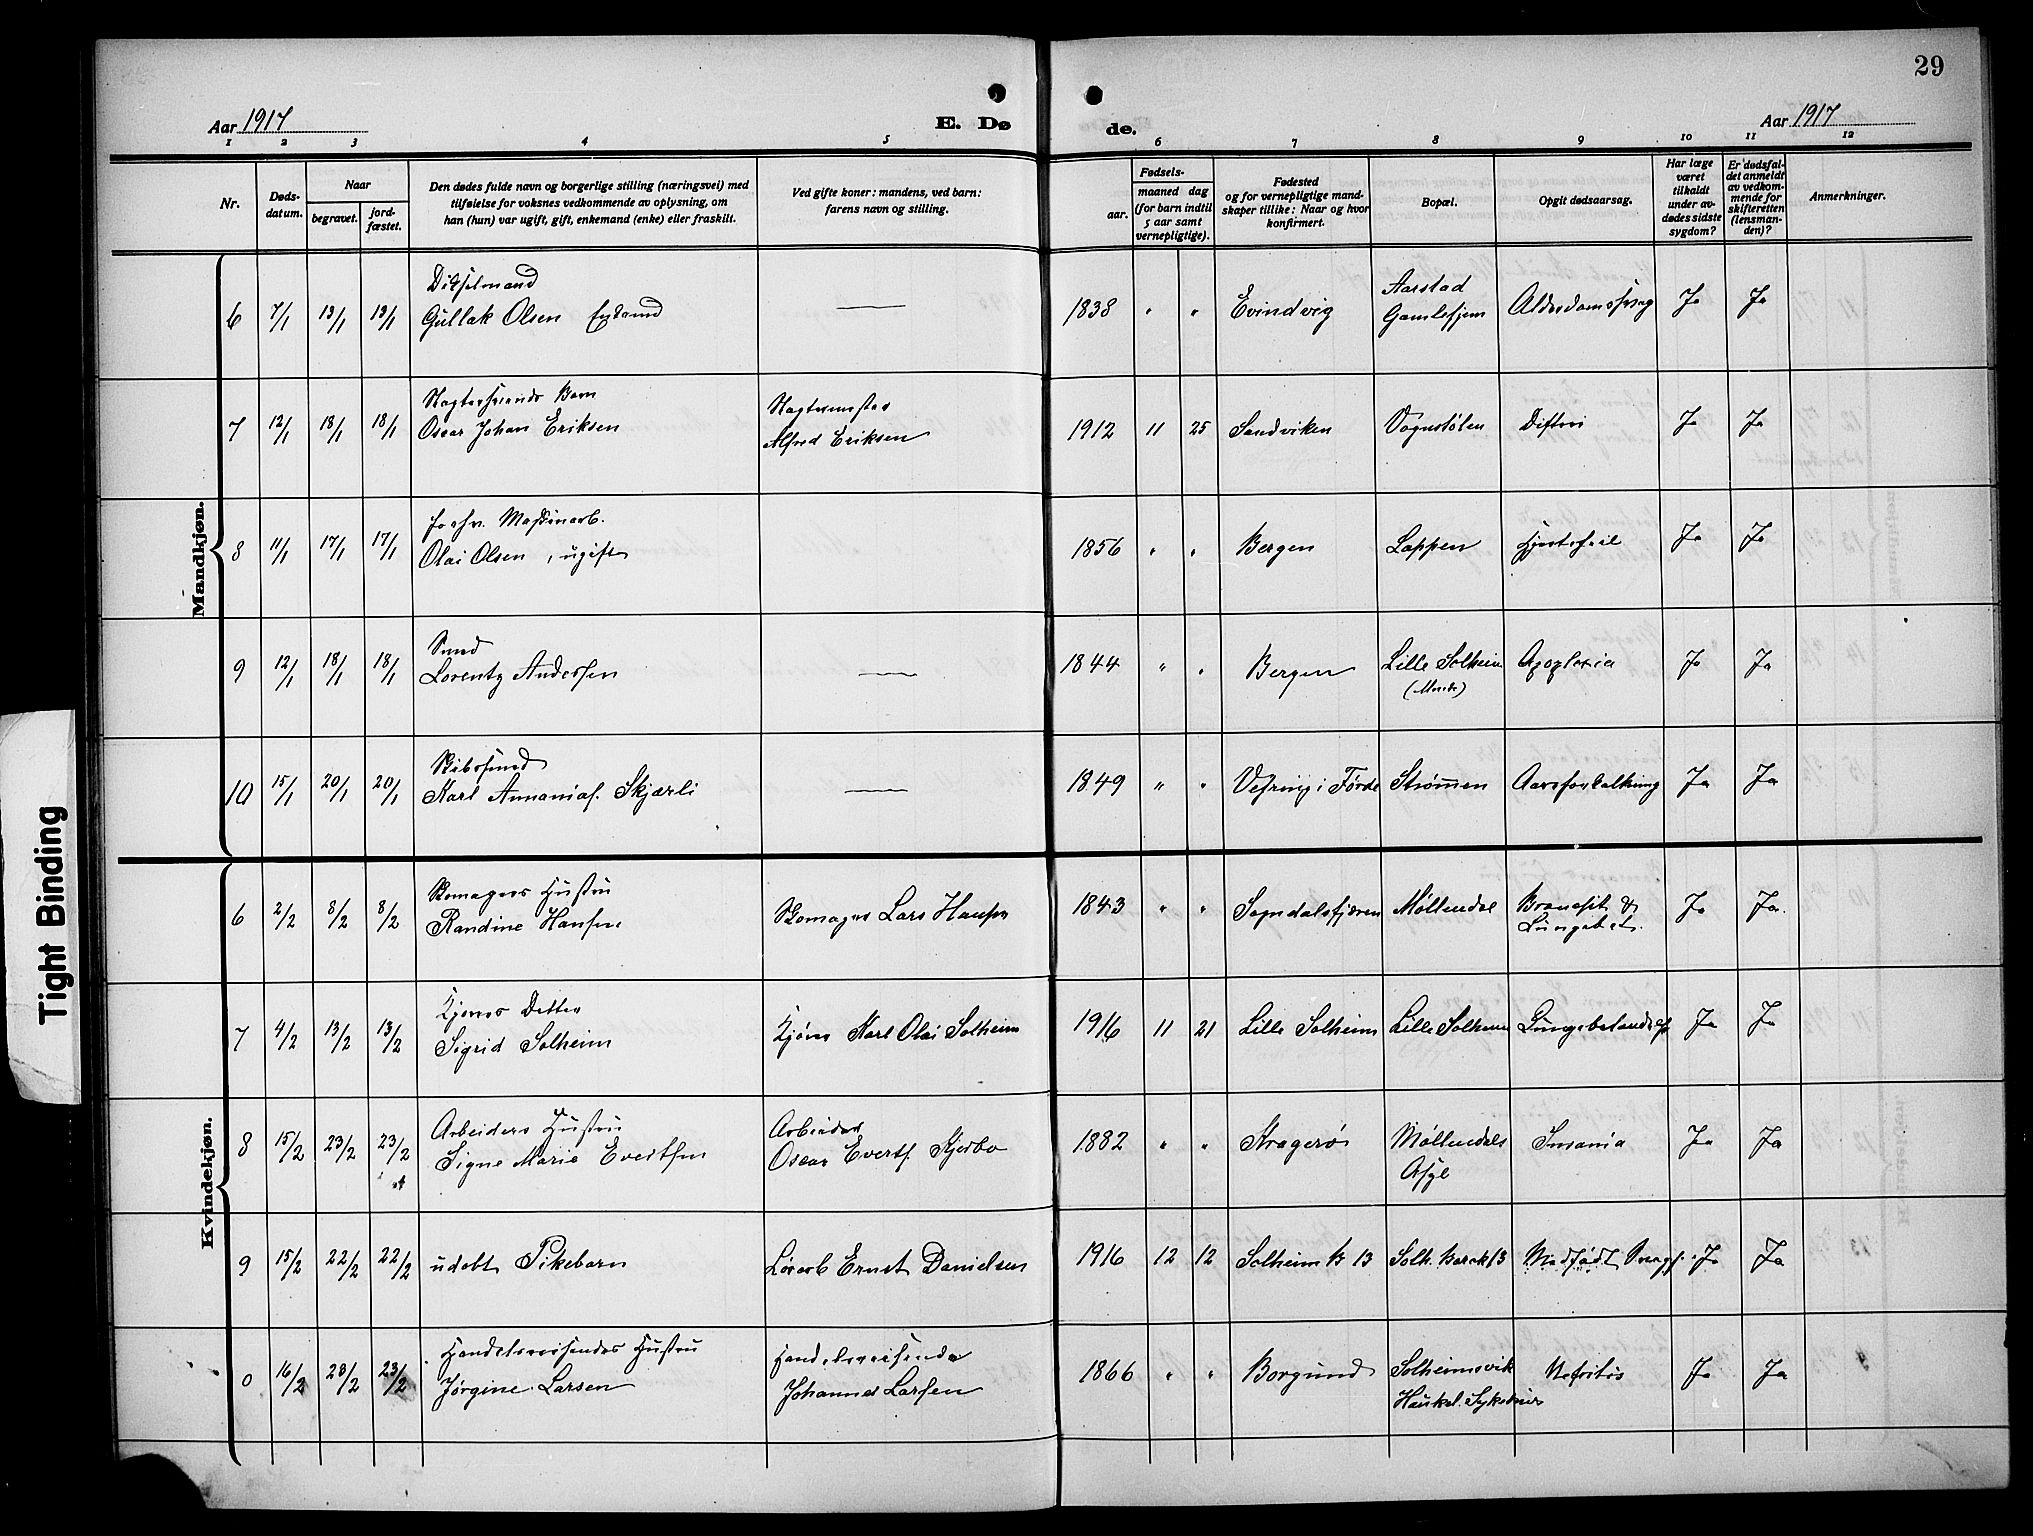 29
Aar 1917 E. Dø de. Aar 1917
1 2 3 4 5 6 7 8 9 10 11 12
Nr.
Døds-
datum.
Naar
begravet.
jord-
fæstet.
Den dødes fulde navn og borgerlige stilling (næringsvei) med
tilføielse for voksnes vedkommende av oplysning, om
han (hun) var ugift, gift, enkemand (enke) eller fraskilt.
Ved gifte koner: mandens, ved barn:
farens navn og stilling.
Fødsels-
aar.
maaned dag
(for barn indtil
5 aar samt
vernepligtige).
Fødested
og for vernepligtige mand-
skaper tillike: Naar og hvor
konfirmert.
Bopæl.
Opgit dødsaarsag.
Har læge
været
tilkaldt
under av-
dødes sidste
sygdom?
Er dødsfal-
det anmeldt
av vedkom-
mende for
skifteretten
(lensman-
den)?
Anmerkninger.
Mandkjøn.
6 7/1 13/1 13/1
Gullak Olsen
1838 " " Evindvig
Aarstad
Gamlehjem
Ja Ja
7 12/1 18/1 18/1
Barn
Oscar Johan Eriksen
Slagtermester
Alfred Eriksen
1912 11 25 Sandviken Vognstølen Difteri Ja Ja
8 11/1 17/1 17/1
forhv. Maskinarb.
Olai Olsen, ugift
1856 " " Bergen Lappen Hjertefeil Ja Ja
9 12/1 18/1 18/1
Lorentz Anderssen
1844 " " Bergen Lille Solheim
Apoplexia Ja Ja
10 15/1 20/1 20/1
Karl Annanias. Skjærli
1849 " " Vefring i Førde Strømmen Aareforkalkning Ja Ja
Kvindekjøn.
6 2/2 8/2 8/2
Skomagers Hustru
Randine Hansen
Skomager Lars Hansen
1843 " " Sogndalsfjæren Møllendal
Bronchit &
Lungebet.
Ja Ja.
7 4/2 13/2 13/2
Kjøres Datter
Sigrid Solheim
Kjører Karl Olai Solheim
1916 11 21 Lille Solheim Lille Solheim Ja Ja
8 15/2 23/2 23/2
Arbeiders Hustru
Signe Marie Evertsen
Arbeider
Oscar Everts. Kjerbo
1882 " " Kragerø
Møllendals
Asyl
Insania Ja Ja
9 15/2 22/2 22/2
udøbt Pikebarn
Løsarb Ernst Danielsen
1916 12 12 Solheim B 13 Solh. Barak 13 Medfødt Svagh. Ja Ja
0 16/2 23/2 23/2
Handelsreisendes Hustru
Jørgine Larsen
Handelsreisende
Johannes Larsen
1866 " " Borgund
Solheimsvik
Haukel. Sykehus
Nefritis Ja Ja
Tight Binding